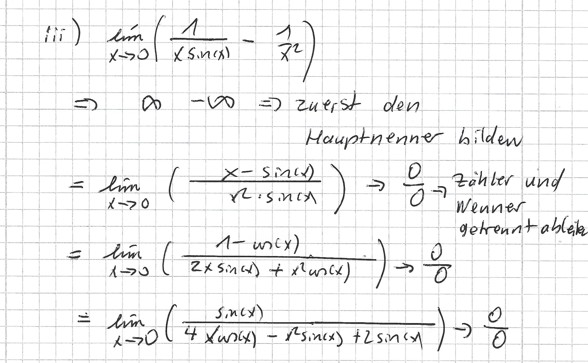 iii) lim x→0 ( 1 / x sin(x) - 1 / x² )
⇒ ∞ -∞ ⇒ zuerst den
Hauptnenner bilden
= lim x→0 ( x - sin(x) / x² · sin(x) ) → 0/0 → Zähler und
Nenner
getrennt ableite
= lim x→0 ( 1 - cos(x) / 2x sin(x) + x² cos(x) ) → 0/0
= lim x→0 ( sin(x) / 4 x cos(x) - x² sin(x) + 2 sin(x) ) → 0/0